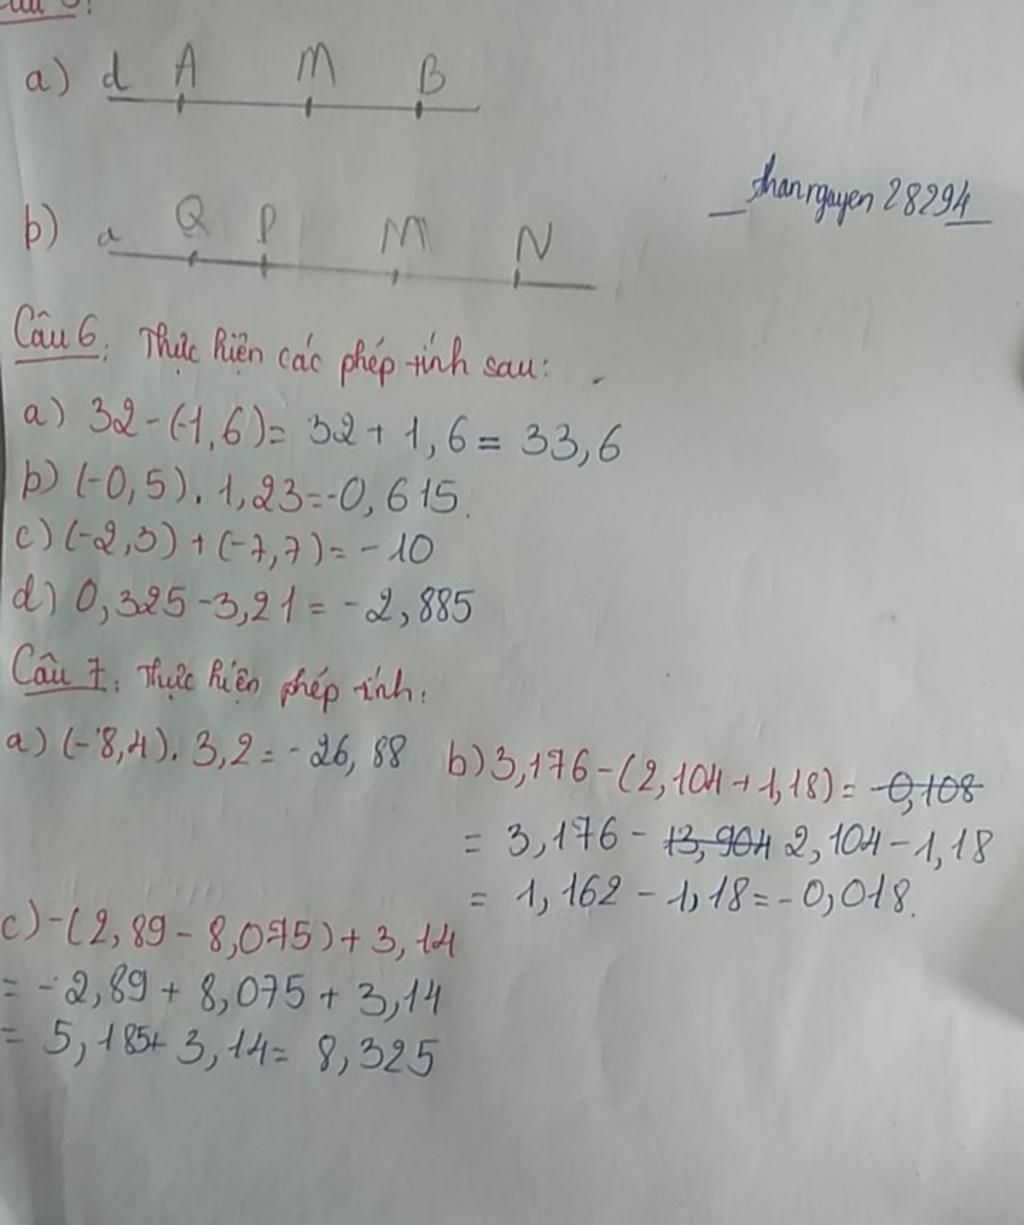 a) d A M B
thanrguyen 28294
b) a Q P M N
Câu 6: Thực hiện các phép tính sau:
a) 32-(-1,6)= 32+ 1,6 = 33,6
b) (-0,5). 1,23=-0,615.
c) (-2,3) + (-7,7)= -10
d) 0,325-3,21 = -2,885
Câu 7: Thực hiện phép tính:
a) (-8,4). 3,2 = -26,88
b) 3,176-(2,104+1,18)= -0,108
= 3,176 - 13,904 2,104-1,18
= 1,162 - 1,18=-0,018.
c) -(2,89 - 8,075)+3,14
= -2,89 + 8,075 + 3,14
= 5,185+ 3,14= 8,325